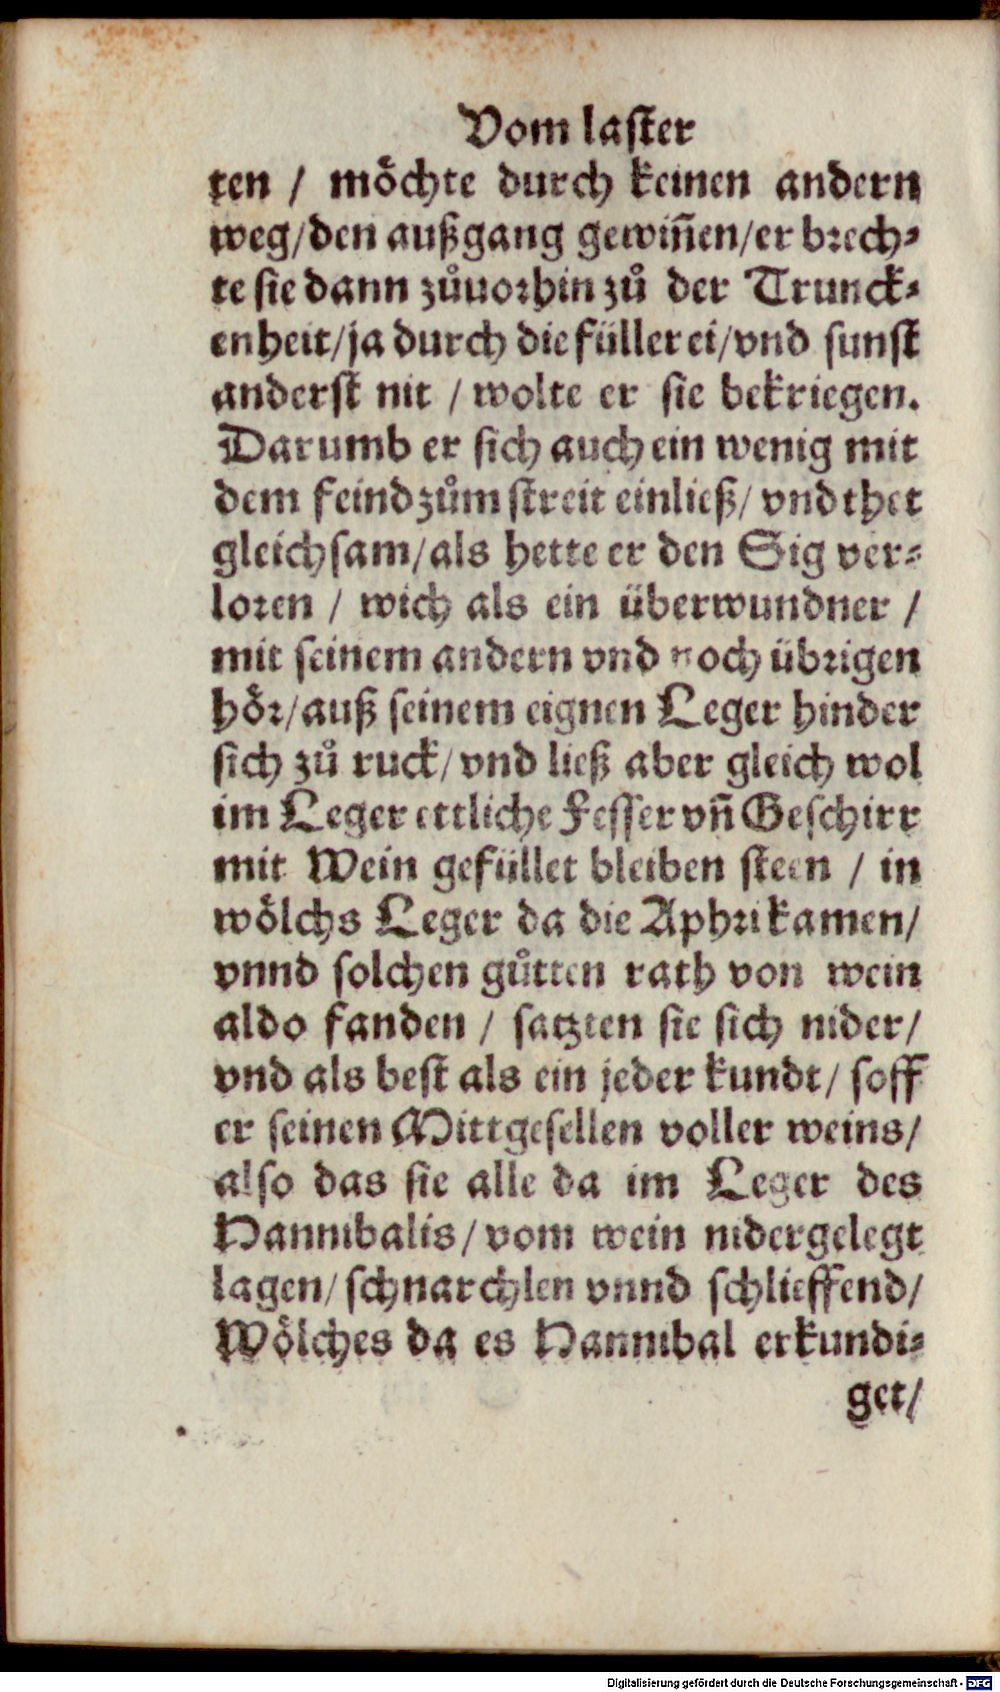 Vom laster
ten / möchte durch keinen andern
weg/den außgang gewiñen/er brech⸗
te sie dann zůuorhin zů der Trunck⸗
enheit/ja durch die füllerei/vnd sunst
anderst nit / wolte er sie bekriegen.
Darumb er sich auch ein wenig mit
dem feind zům streit einließ/ vnd thet
gleichsam/als hette er den Sig ver⸗
loren / wich als ein überwundner /
mit seinem andern vnd noch übrigen
hör/auß seinem eignen Leger hinder
sich zů ruck/vnd ließ aber gleich wol
im Leger ettliche Fesser vñ Geschirr
mit Wein gefüllet bleiben steen / in
wölchs Leger da die Aphrikamen/
vnnd solchen gůtten rath von wein
aldo fanden / satzten sie sich nider/
vnd als best als ein jeder kundt/ soff
er seinen Mittgesellen voller weins/
also das sie alle da im Leger des
Hannibalis/vom wein nidergelegt
lagen/schnarchlen vnnd schlieffend/
Wölches da es Hannibal erkundi⸗
get/
Digitalisierung gefördert durch die Deutsche Forschungsgemeinschaft - DFG